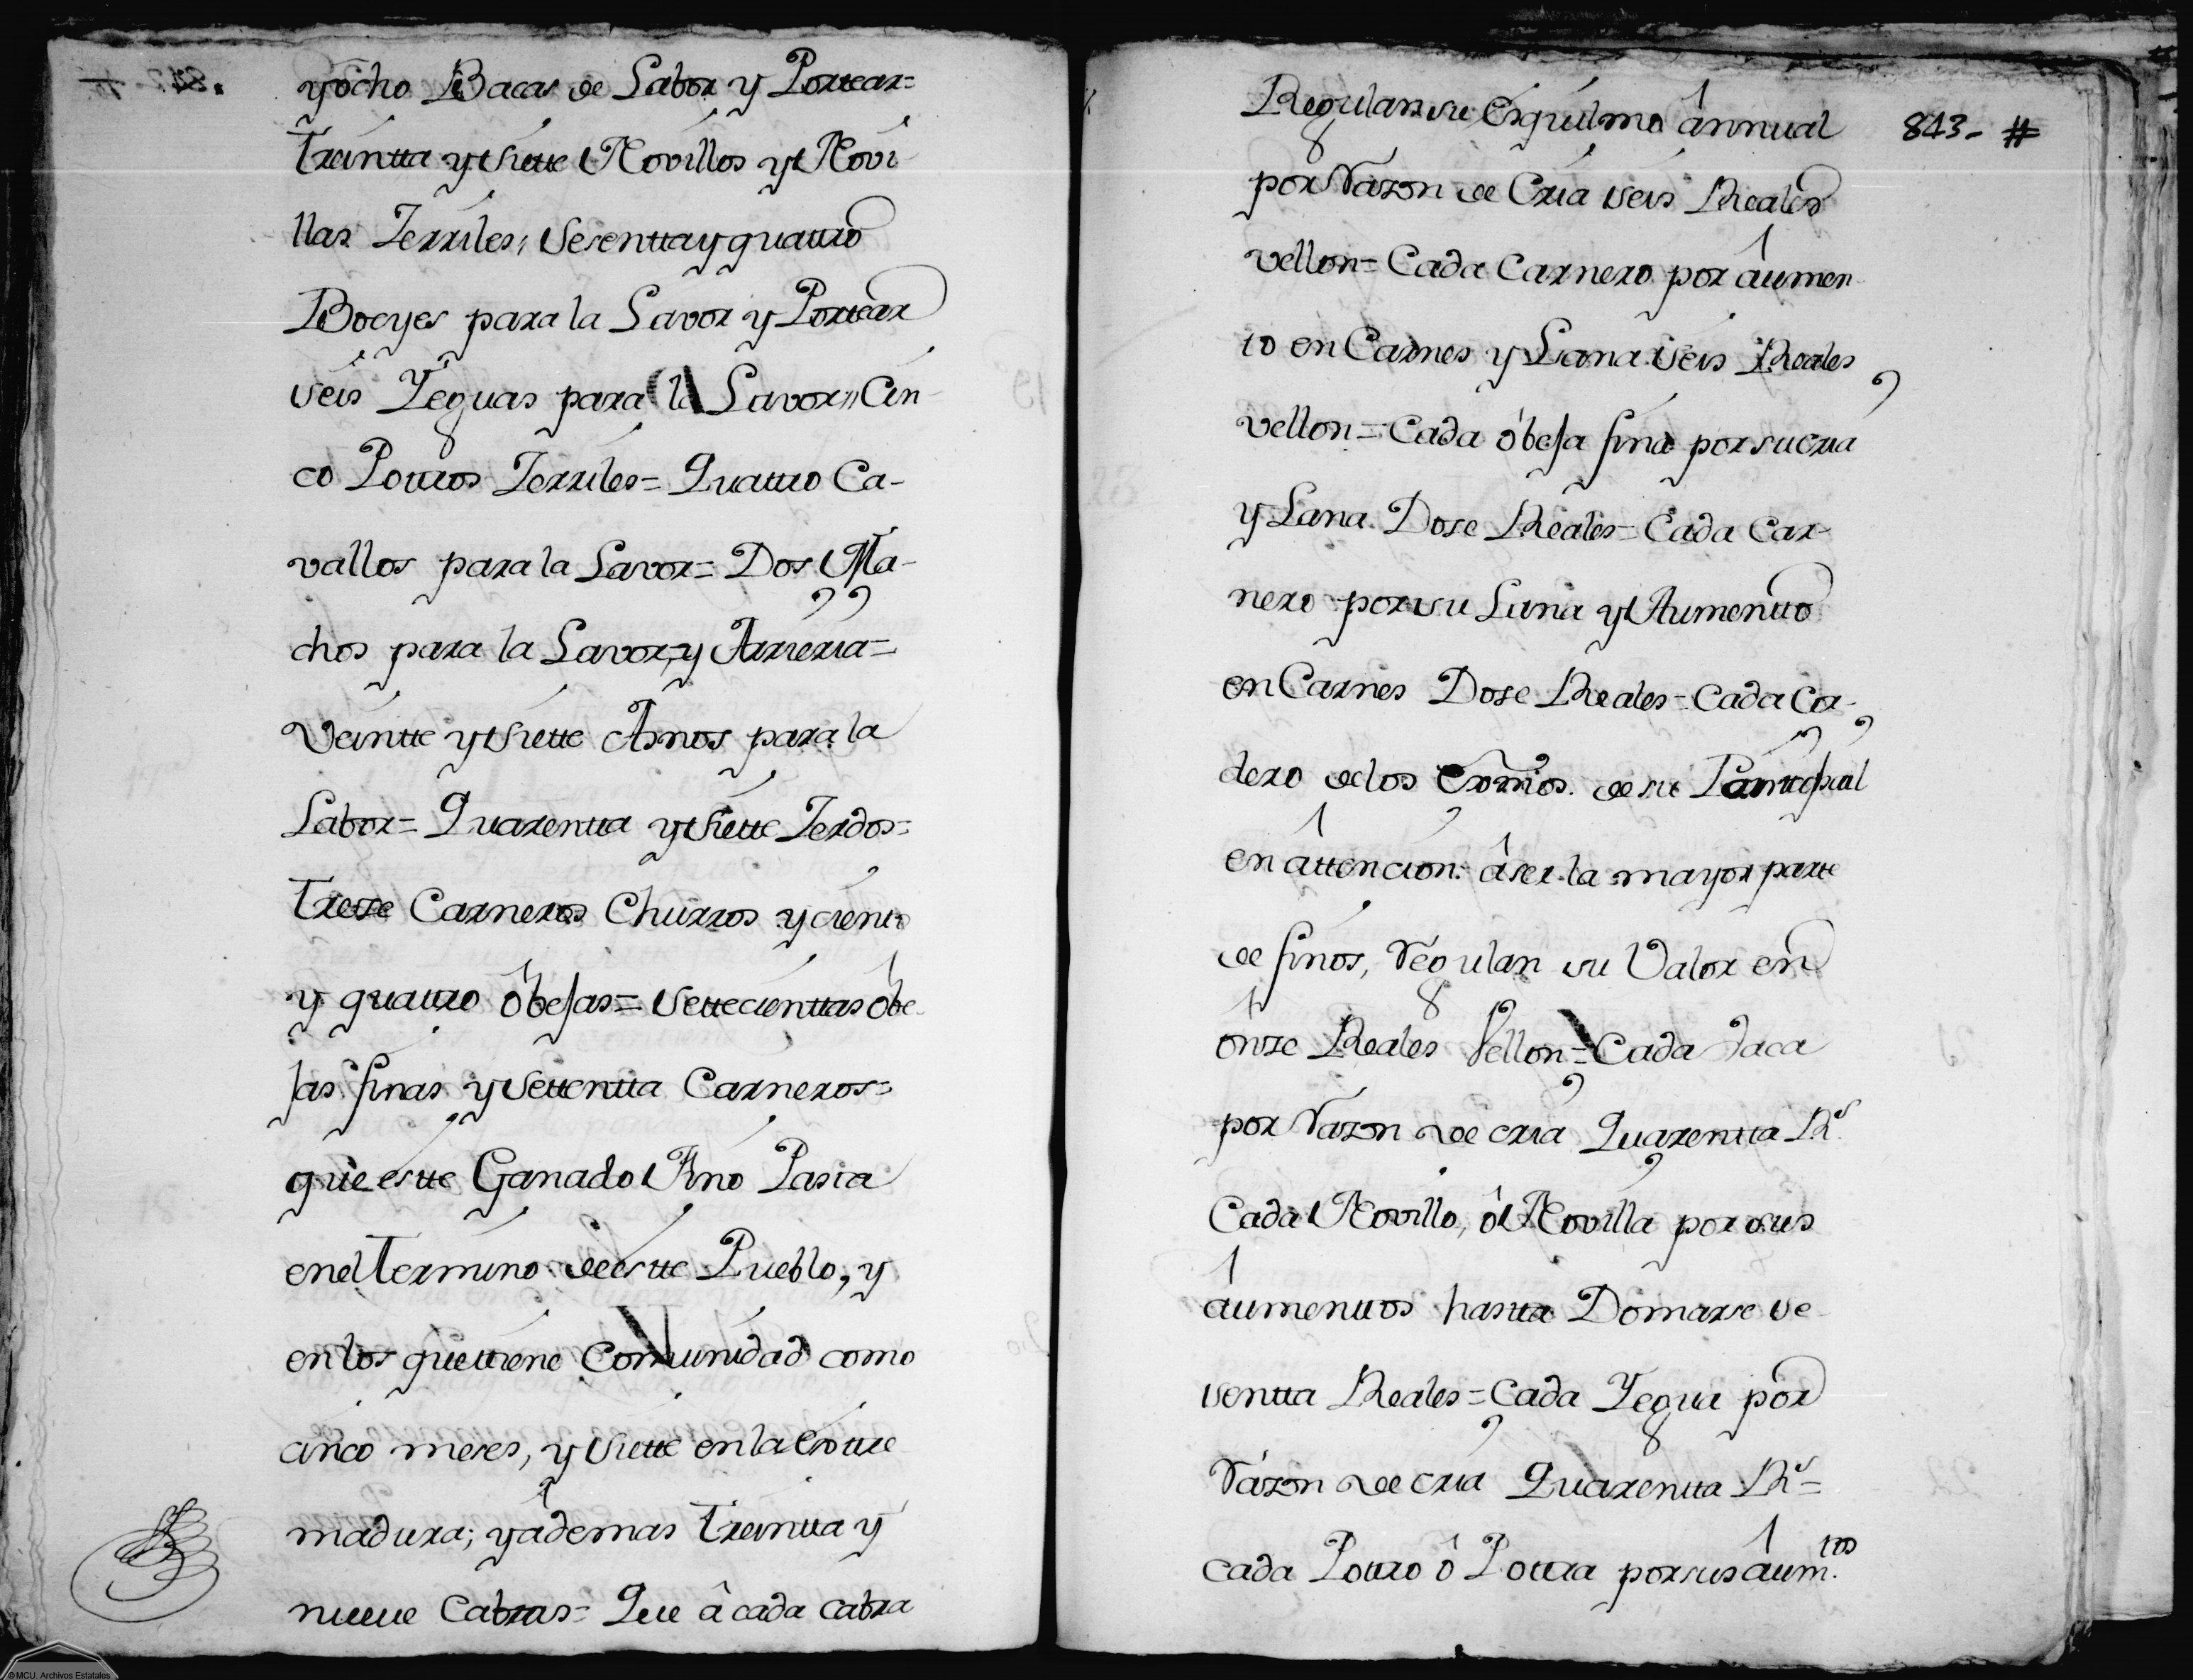 yôcho Bacas de Labor y Portear=
Treintta y Siette Novillos y Novi-
llas Zerriles, Sesentta y quattro
Boeyes para la Lavor y Portear
seis Yeguas para la Lavor,, Cin-
co Pottros Zerriles= Quattro Ca-
vallos para la Lavor= Dos Ma-
chos para la Lavor, y Arrieria=
Veintte y Siette Asnos para la
Labor= Quarentta y Siette Zerdos=
Treze Carneros Churros y cientto
y quattro ôbejas= Settecienttas ôbe-
jas finas y Settentta Carneros=
que estte Ganado fino Pasta
en el Termino de estte Pueblo, y
en los que tiene Comunidad como
cinco meses, y Siette en la Esttre
madura; y âdemas Treintta y
nueve Cabras= Que â cada cabra
843- #
Regulan su Esquilmo ânnual
por razon de Cria seis Reales
vellon= Cada Carnero por âumen-
to en Carnes y Lana seis Reales
vellon= Cada óbeja fina por su cria
y Lana Dose Reales= Cada Car-
nero por su Lana y Aumentto
en Carnes Dose Reales= Cada Cor-
dero de los de su
en âttencion âser la mayor partte
de finos, regulan su Valor en
ônze Reales Vellon= Cada Baca
por razon de cria Quarentta Rs.
Cada Novillo, ô Novilla por sus
âumenttos hastta Domarse se-
sentta Reales= Cada Yegua por
razon de cria Quarentta Rs=
cada Pottro ô Pottra por sus âum.tos
© MCU. Archivos Estatales